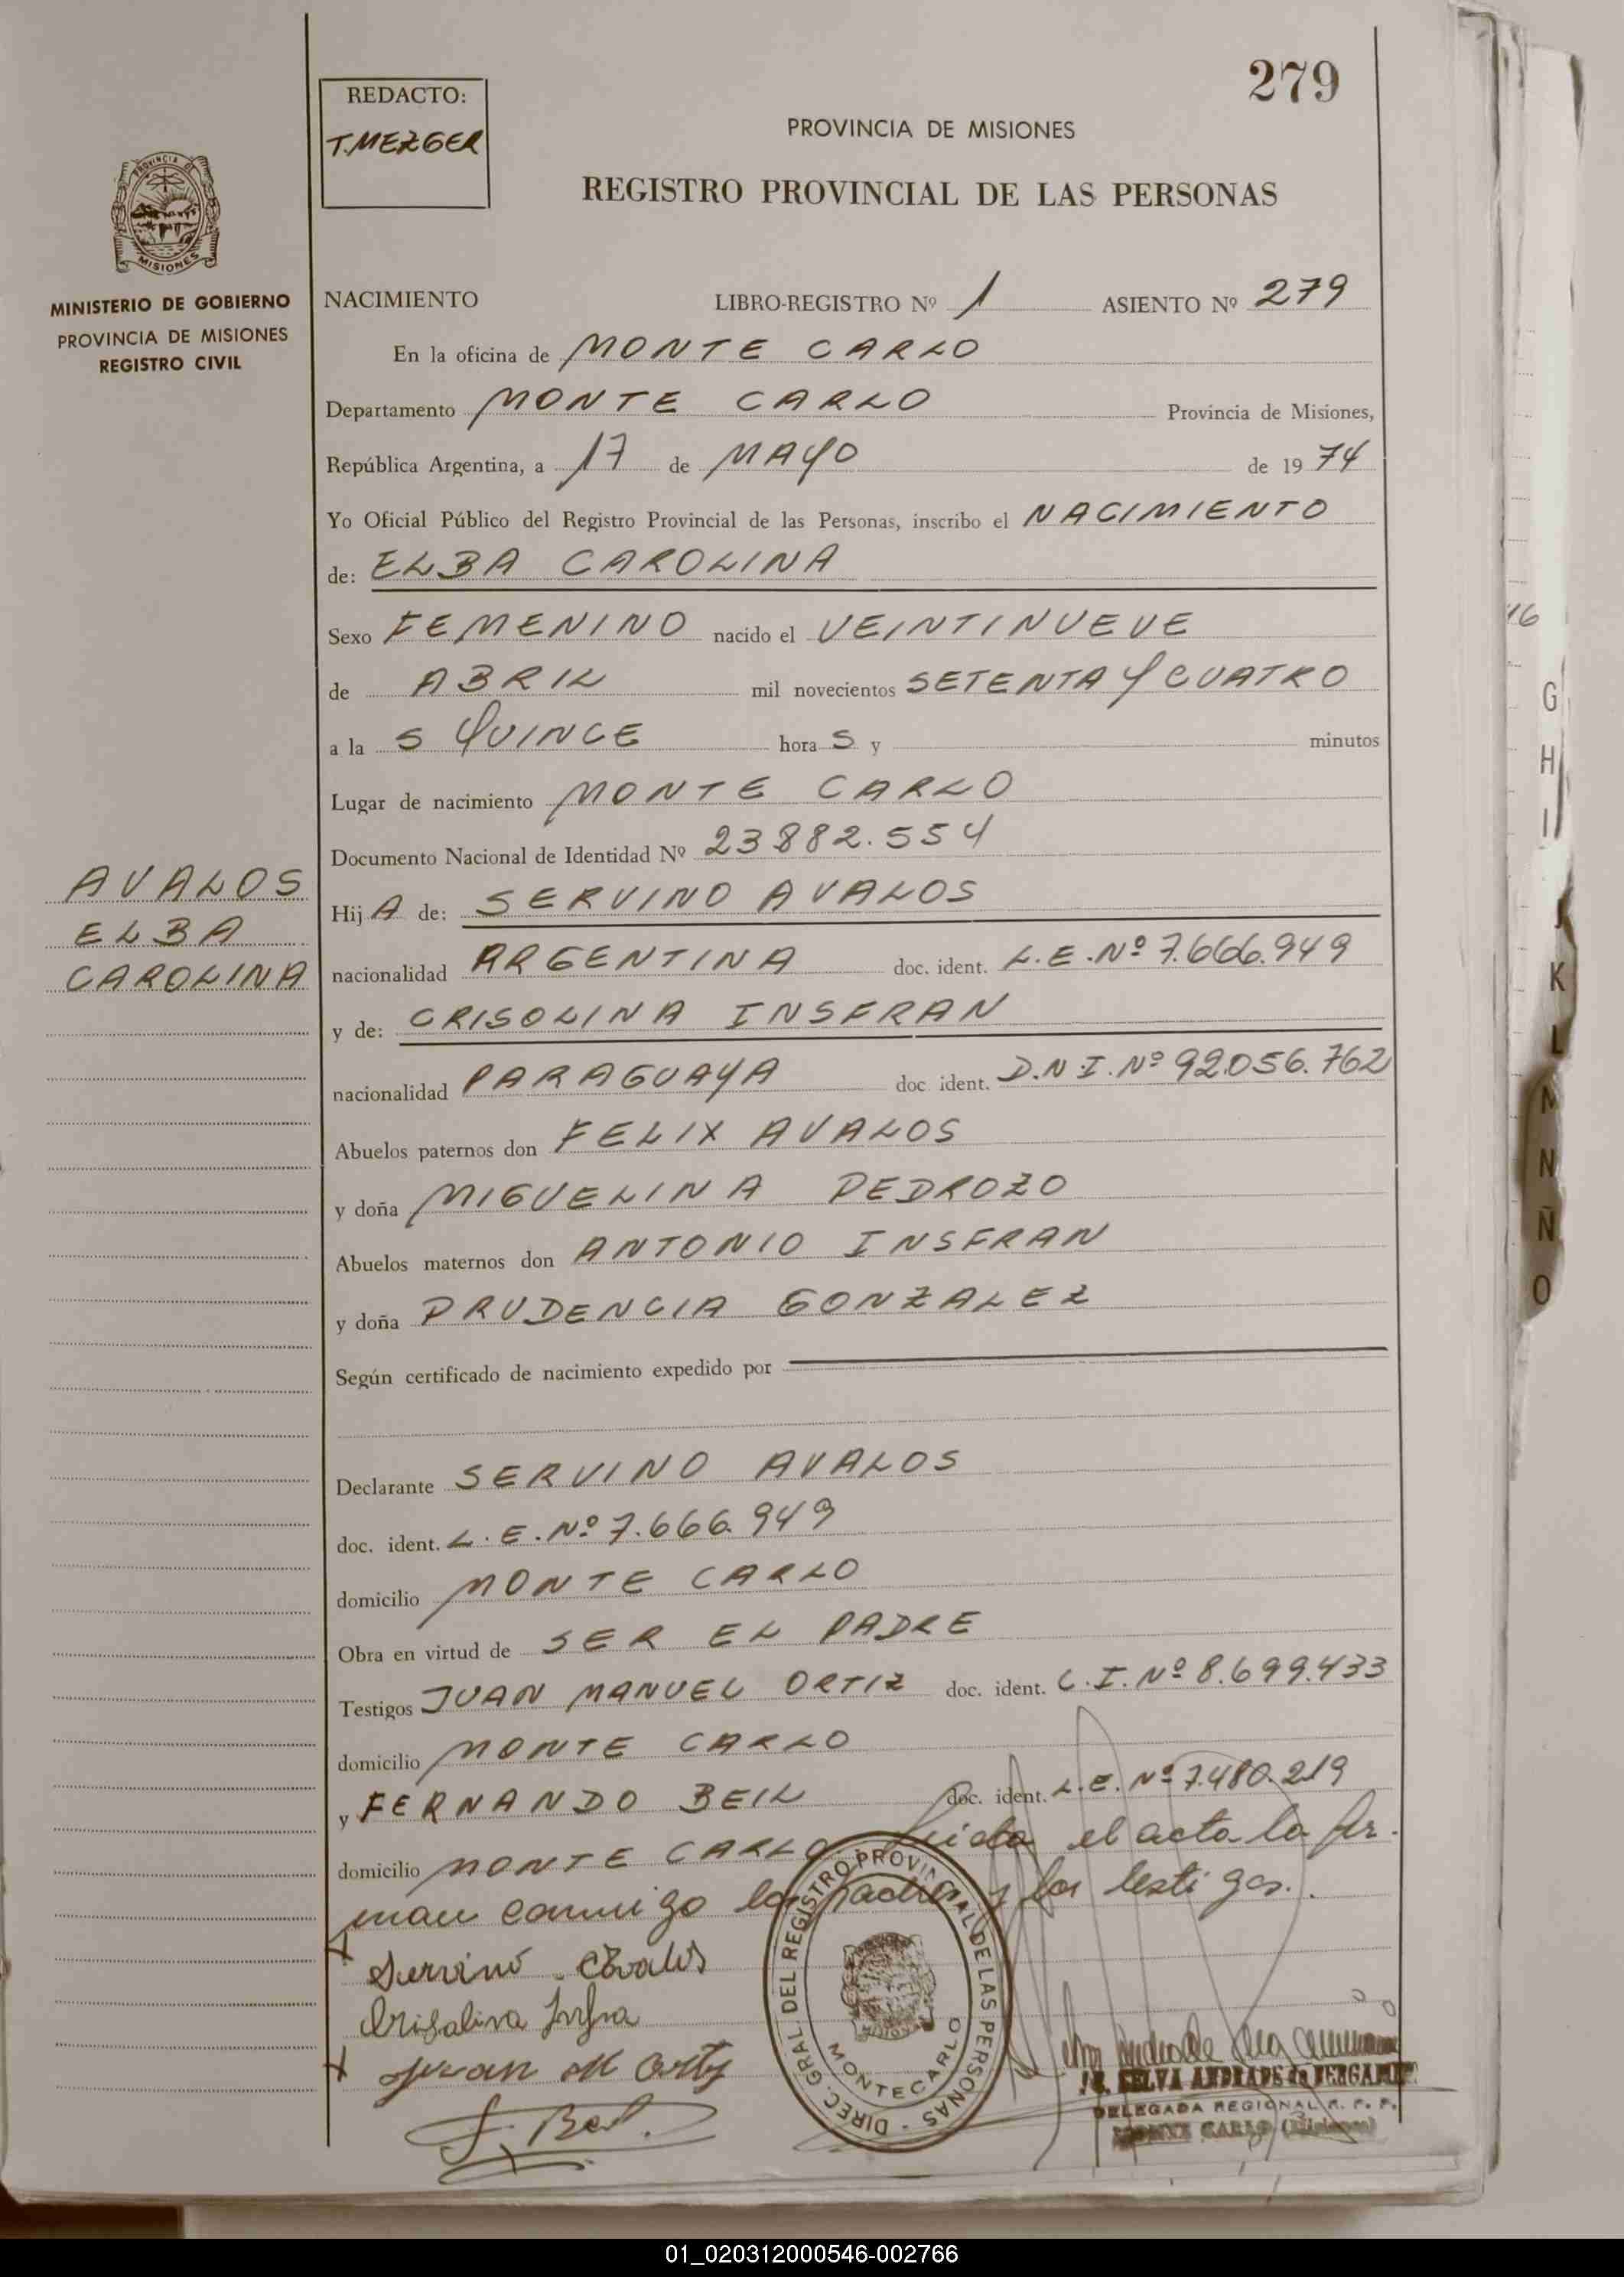 279
REDACTO:
T. MEZGER
PROVINCIA DE MISIONES
REGISTRO PROVINCIAL DE LAS PERSONAS
PROVINCIA DE
MISIONES
MINISTERIO DE GOBIERNO
PROVINCIA DE MISIONES
REGISTRO CIVIL
NACIMIENTO LIBRO-REGISTRO Nº 1 ASIENTO Nº 279
En la oficina de MONTE CARLO
Departamento MONTE CARLO Provincia de Misiones,
República Argentina, a 17 de MAYO de 1974
Yo Oficial Público del Registro Provincial de las Personas, inscribo el NACIMIENTO
de: ELBA CAROLINA
Sexo FEMENINO nacido el VEINTINUEVE
de ABRIL mil novecientos SETENTA Y CUATRO
a la S QUINCE hora S y minutos
Lugar de nacimiento MONTE CARLO
Documento Nacional de Identidad Nº 23882.554
AVALOS
ELBA
CAROLINA
Hij A de: SERVINO AVALOS
nacionalidad ARGENTINA doc. ident. L.E.Nº 7.666.949
y de: CRISOLINA INSFRAN
nacionalidad PARAGUAYA doc ident. D.N.I.Nº 92.056.762
Abuelos paternos don FELIX AVALOS
y doña MIGUELINA PEDROZO
Abuelos maternos don ANTONIO INSFRAN
y doña PRUDENCIA GONZALEZ
Según certificado de nacimiento expedido por
Declarante SERVINO AVALOS
doc. ident. L.E.Nº 7.666.949
domicilio MONTE CARLO
Obra en virtud de SER EL PADRE
Testigos JUAN MANUEL ORTIZ doc. ident. C.I.Nº 8.699.433
domicilio MONTE CARLO
y FERNANDO BEIL doc. ident. L.E.Nº 7.480.219
domicilio MONTE CARLO Leida el acta la fir-
man conmigo los padres y los testigos.
Servino Avalos
Crisolina Insfra
Juan M Ortiz
F. Beil
DIREC. GRAL. DEL REGISTRO PROVINCIAL DE LAS PERSONAS -
MONTECARLO
SELVA ANDRADE de
DELEGADA REGIONAL R. P. P.
MONTE CARLO (Misiones)
16
G
H
I
J
K
L
M
N
Ñ
O
01_020312000546-002766